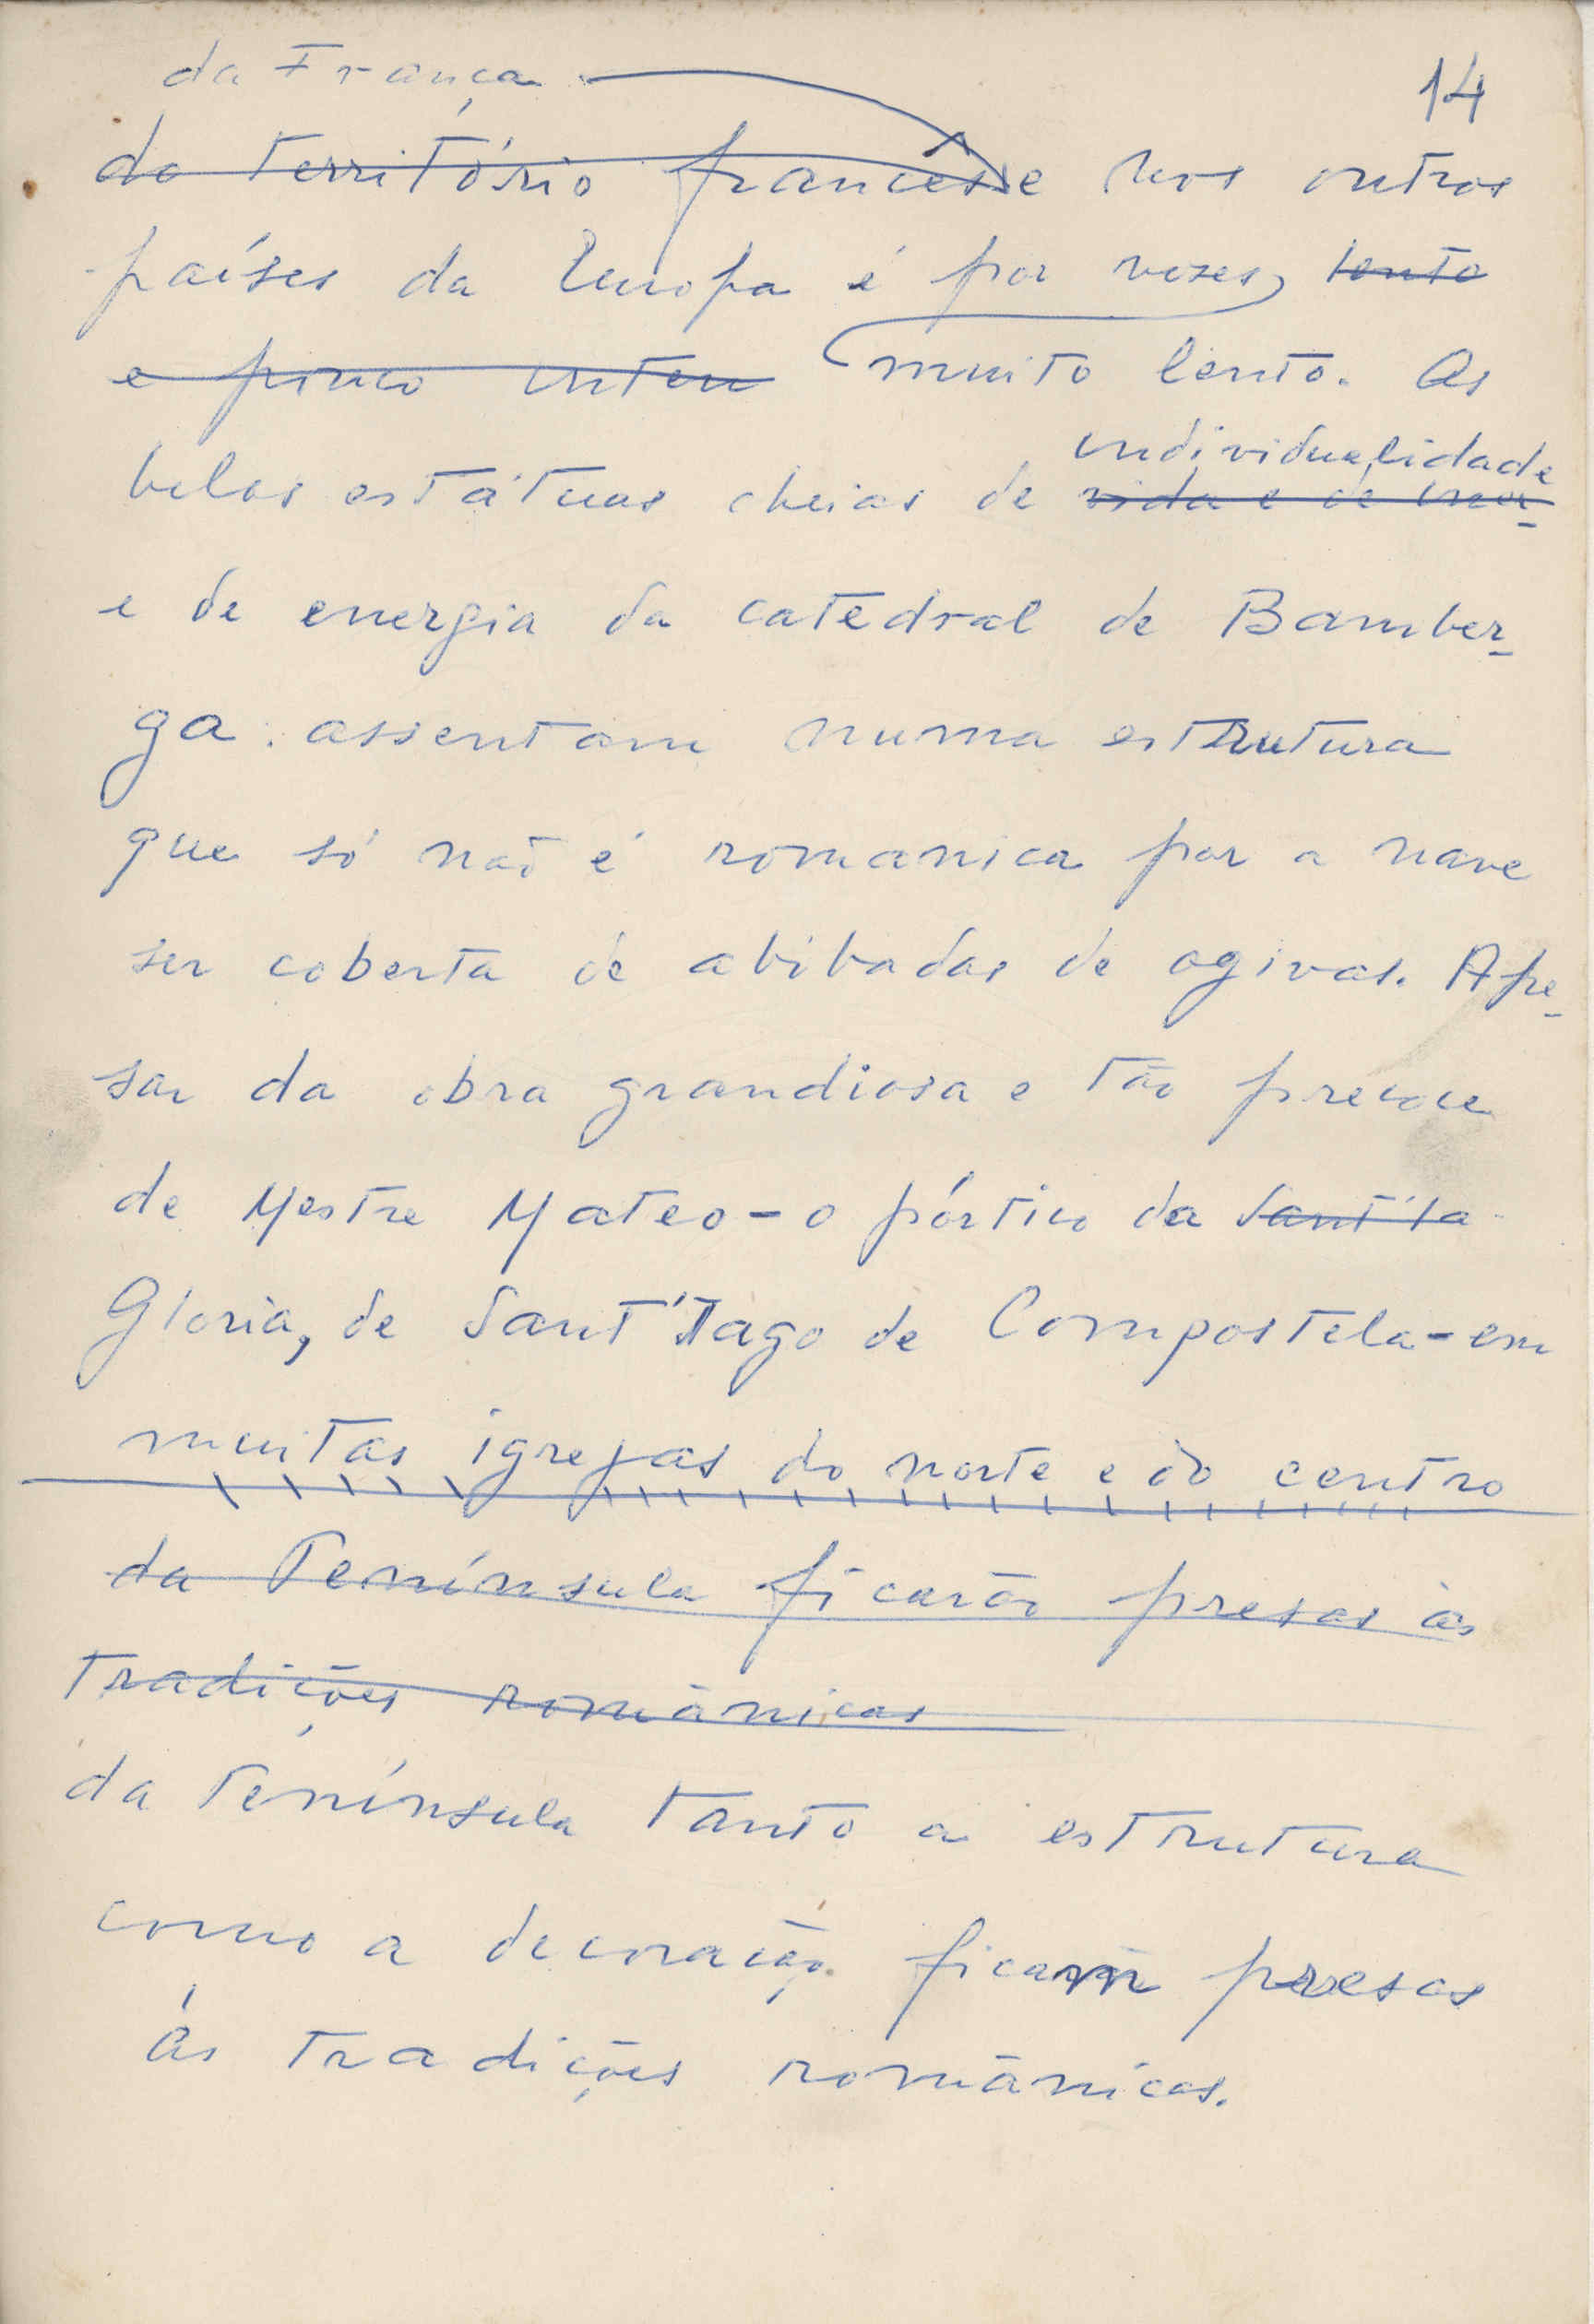 da França
14
do território francês e nos outros
países da Europa é por vezes, lento
e pouco inten muito lento. As
individualidade
belas estátuas cheias de vida e de ener-
e de energia da catedral de Bamber-
ga assentam numa estrutura
que só não é romanica por a nave
ser coberta de abóbadas de ogivas. Ape-
sar da obra grandiosa e tão precoce
de Mestre Mateo - o pórtico da Sant'Ia
Gloria, de Sant'Iago de Compostela - em
muitas igrejas do norte e do centro
da Península ficarão presas às
tradições românicas
da Península tanto a estrutura
como a decoração ficam presas
às tradições românicas.